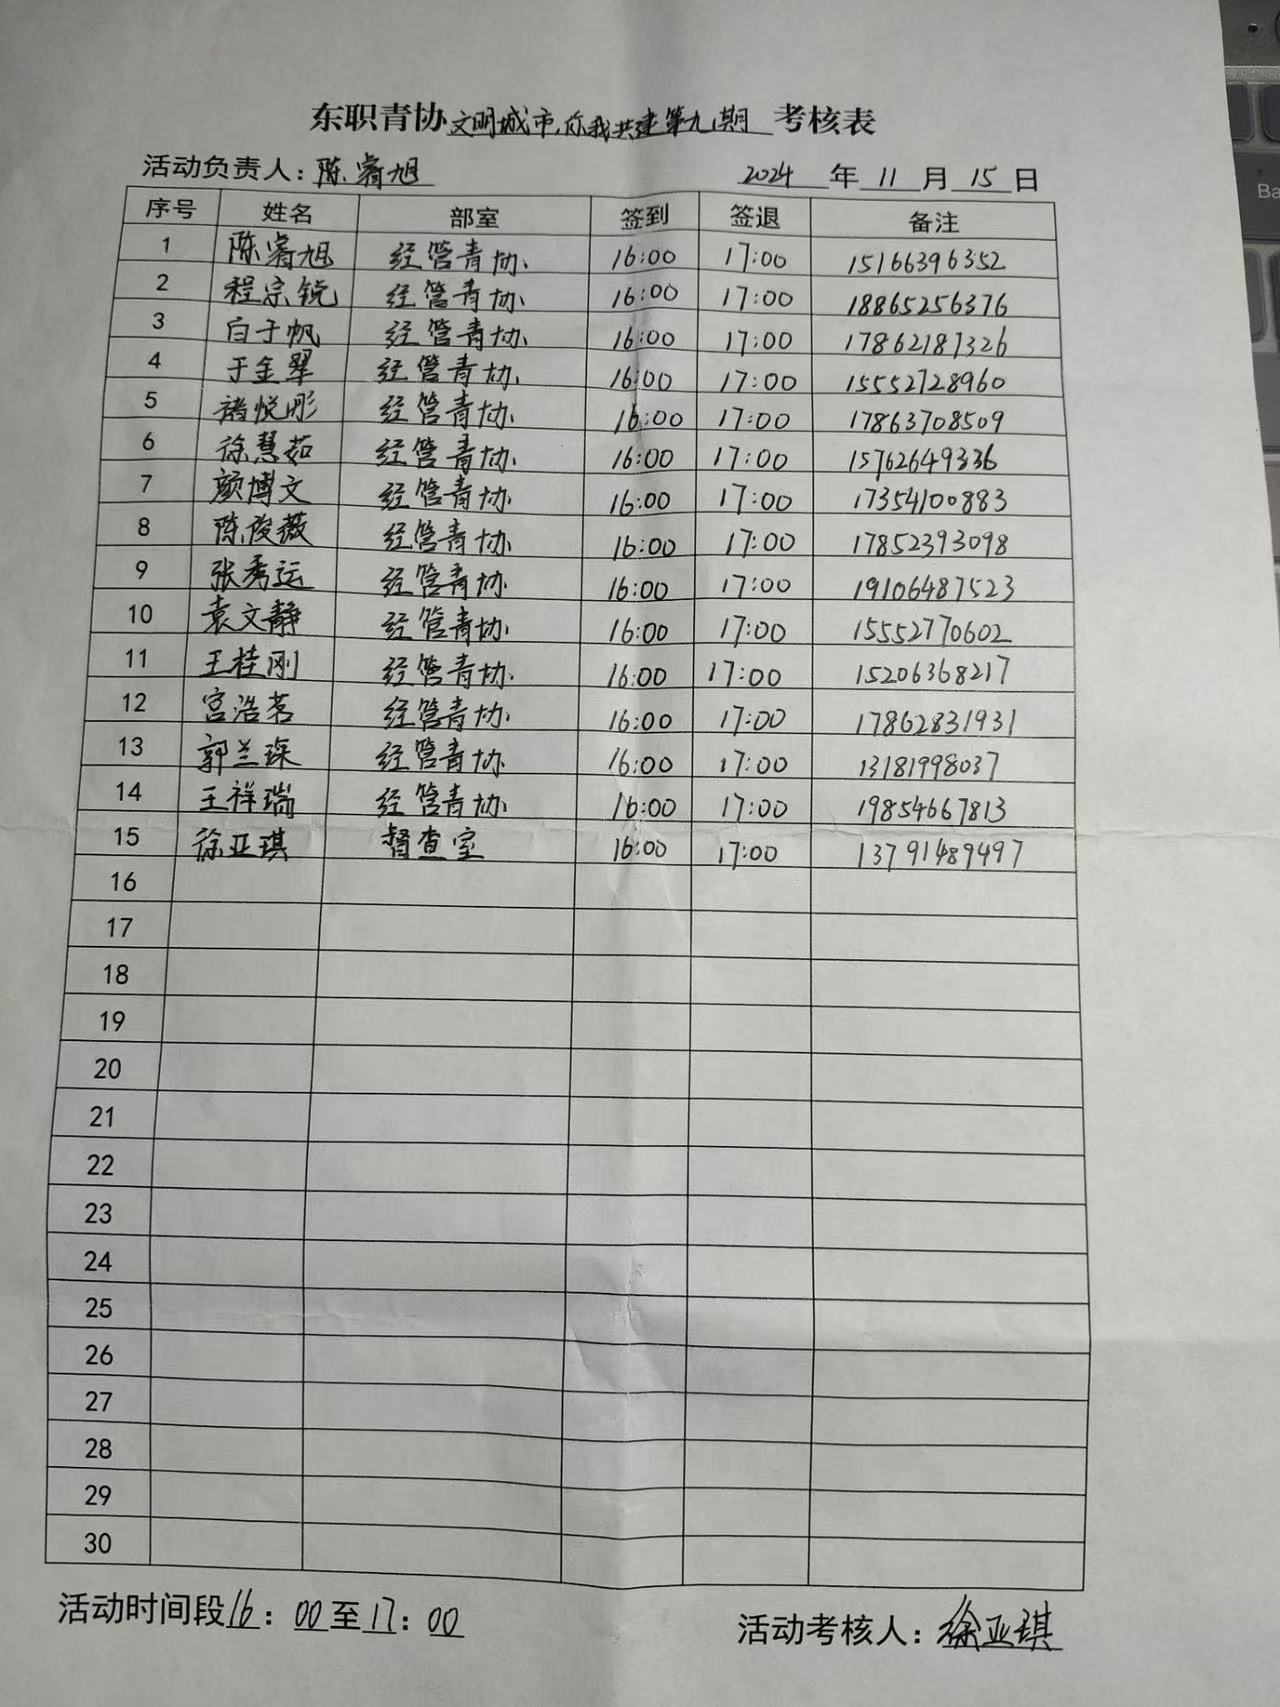 东职青协文明城市,你我共建第九期考核表
活动负责人：陈睿旭 2024年11月15日
序号 姓名 部室 签到 签退 备注
1 陈睿旭 经管青协 16:00 17:00 15166396352
2 程宗锐 经管青协 16:00 17:00 18865256376
3 白于帆 经管青协 16:00 17:00 17862187326
4 于金翠 经管青协 16:00 17:00 15552728960
5 褚悦彤 经管青协 16:00 17:00 17863708509
6 徐慧茹 经管青协 16:00 17:00 15762649336
7 颜博文 经管青协 16:00 17:00 17354100883
8 陈俊薇 经管青协 16:00 17:00 17852393098
9 张秀运 经管青协 16:00 17:00 19106487523
10 袁文静 经管青协 16:00 17:00 15552770602
11 王桂刚 经管青协 16:00 17:00 15206368217
12 宫浩茗 经管青协 16:00 17:00 17862831931
13 郭兰琛 经管青协 16:00 17:00 13181998037
14 王祥瑞 经管青协 16:00 17:00 19854667813
15 徐亚琪 督查室 16:00 17:00 13791489497
16
17
18
19
20
21
22
23
24
25
26
27
28
29
30
活动时间段16：00至17：00 活动考核人：徐亚琪